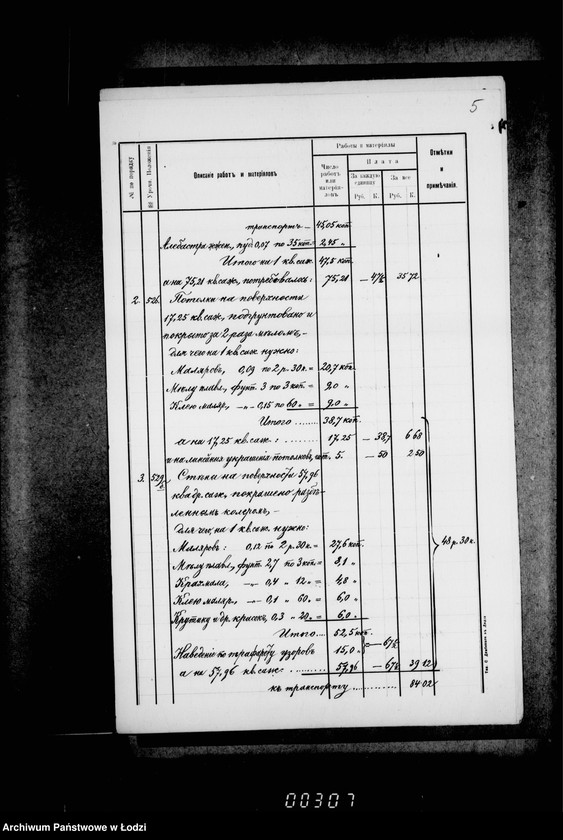 5
№ по порядку
№ Урочн. Положенія
Описаніе работъ и матеріаловъ
Работы и матеріалы
Число работъ или матеріаловъ
Плата
За каждую единицу
За все
Руб. К. Руб. К.
Отмѣтки и примѣчанія.
транспортъ — 45,05 коп.
Алебастра жжен., пуд. 0,07 по 35 коп. = 2,45 „
Итого на 1 кв. саж. 47,5 коп.
а на 75,21 кв. саж., потребовалось: 75,21 — 47½ 35 72
2. 526. Потолки на поверхности
17,25 кв. саж., подгрунтовано и
покрыто за 2 раза мѣломъ, —
для чего на 1 кв. саж. нужно:
Маляровъ, 0,09 по 2 р. 30 к. = 20,7 коп.
Мѣлу плавл., фунт. 3 по 3 коп. = 9,0 „
Клею маляр., —„— 0,15 по 60 „ = 9,0 „
Итого ........ 38,7 коп.
а на 17,25 кв. саж.: ........ 17,25 — 38,7 6 68
и на линейныя украшенія потолковъ, 5. — 50 2 50
3. 529 Стѣны на поверхности 57,96
квадр. саж., покрашено
колеромъ, —
для чего, на 1 кв. саж. нужно:
Маляровъ: 0,12 по 2 р. 30 к. = 27,6 коп.
Мѣлу плавл., фунт. 2,7 по 3 коп. = 8,1 „
Крахмала, —„— 0,4 „ 12 „ = 4,8 „
Клею маляр., —„— 0,1 „ 60 „ = 6,0 „
и др. краски, 0,3 „ 20 „ = 6,0 „
48 р. 30 к.
Итого .... 52,5 коп.
Наведеніе по трафарету узоровъ 15,0 „ = — 67½
а на 57,96 кв. саж. ........ 57,96 — 67½ 39 12
къ транспорту ............ 84 02
00307
Archiwum Państwowe w Łodzi